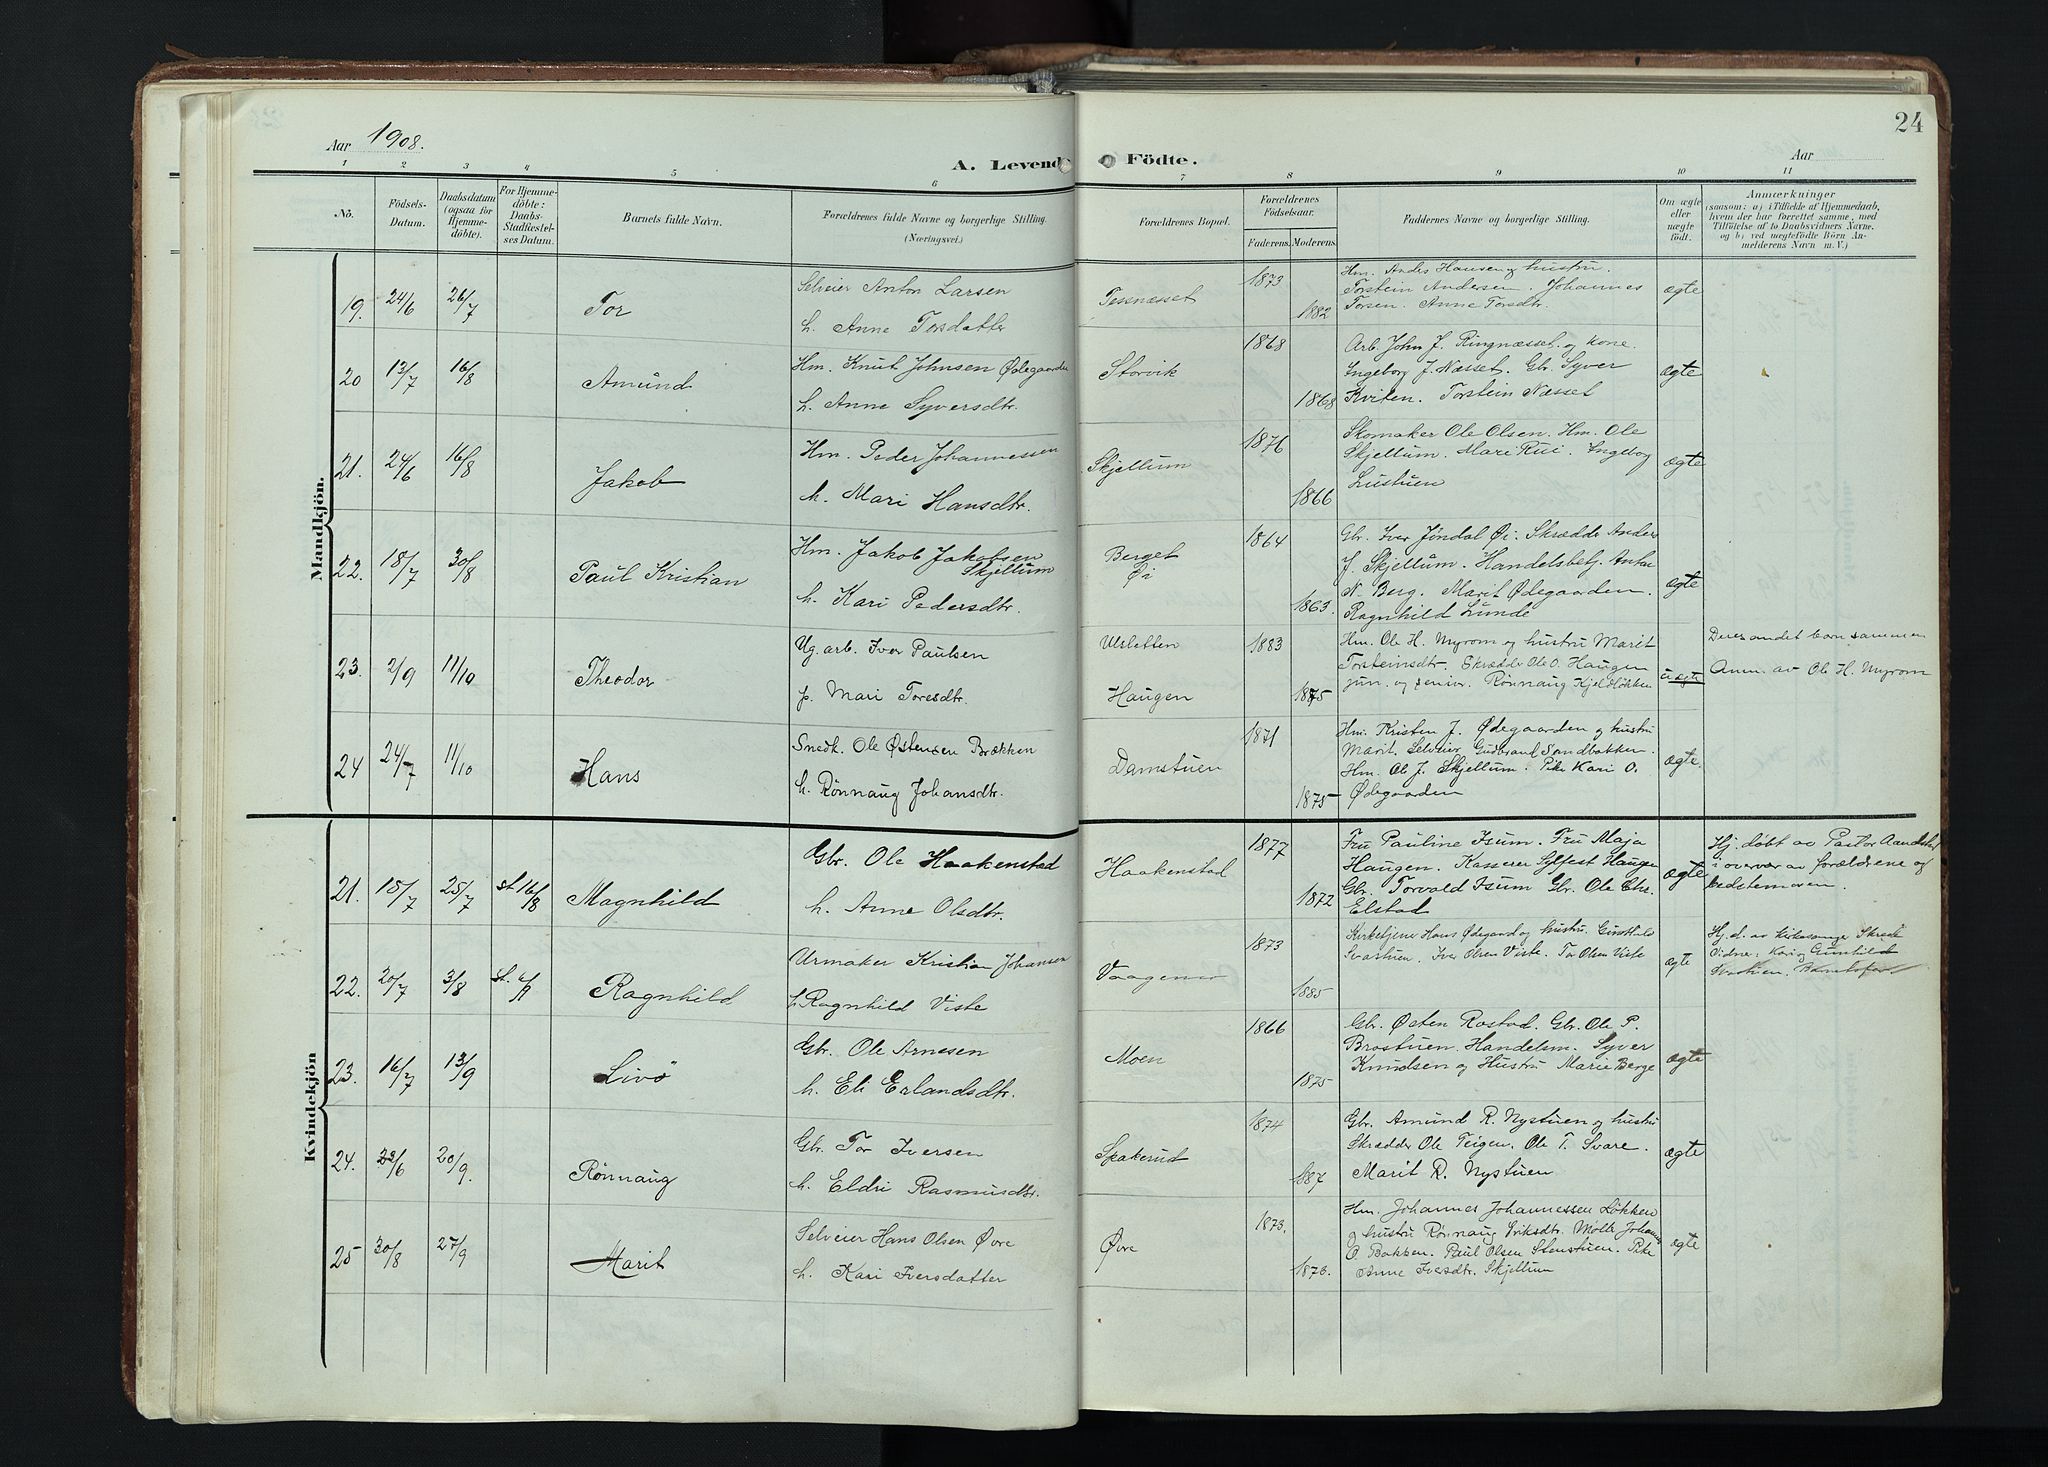 24
Aar 1908.
A. Levende Födte.
Aar
1 2 3 4 5 6 7 8 9 10 11
No.
Födsels-
Datum.
Daabsdatum
(ogsaa for
Hjemme-
döbte).
For Hjemme-
döbte:
Daabs-
Stadfæstel-
ses Datum.
Barnets fulde Navn.
Forældrenes fulde Navne og borgerlige Stilling.
(Næringsvei.)
Forældrenes Bopæl.
Forældrenes
Födselsaar.
Faderens. Moderens.
Faddernes Navne og borgerlige Stilling.
Om ægte
eller
uægte
födt.
Anmærkninger
(saasom: a) i Tilfælde af Hjemmedaab,
hvem der har forrettet samme, med
Tilföielse af to Daabsvidners Navne,
og b) ved uægtefödte Börn An-
melderens Navn m. V.)
Mandkjön.
19. 24/6 26/7 Tor
Selveier Anton Larsen
h. Anne Torsdatter
Tessnæsset
1873
1882
Hm. Andes Hansen og hustru.
Torstein Andersen. Johannes
Torsen. Anne Torsdtr.
ægte
20 13/7 16/8 Amund
Hm. Knut Johnsen Ødegaarden
h. Anne Syversdtr.
Storvik
1868
1868
Arb. John J. Ringnæsset og kone.
Ingeborg J. Næsset. Gbr. Syver
Kviten. Torstein Næsset
ægte
21. 24/6 16/8 Jakob
Hm. Peder Johannessen
h. Mari Hansdtr.
Skjellum
1876
1866
Skomaker Ole Olsen. Hm. Ole
Skjellum. Mari Rui. Ingeborg
Lustuen
ægte
22. 18/7 30/8 Paul Kristian
Hm. Jakob Jakobsen
Skjellum
h. Kari Pedersdtr.
Berget
Øi
1864
1863.
Gbr. Iver Jøndal Øi. Skrædder Anders
J. Skjellum. Handelsbetj. Anton
N. Berg. Marit Ødegaarden.
Ragnhild Lunde
ægte
23. 2/9 11/10 Theodor
Ug. arb. Iver Paulsen
p. Mari Toresdtr.
Ulsletten
Haugen
1883
1875
Hm. Ole H. Myrom og hustru Marit
Torsteinsdtr. Skrædder Ole O. Haugen
jun. og senior. Rønnaug Kjeldløkken
uægte
Deres andet barn sammen
Anm. av Ole H. Myrom
24 24/7 11/10 Hans
Snedk. Ole Østensen Brækken
h. Rønnaug Johansdtr.
Damstuen
1871
1875
Hm. Kristen J. Ødegaarden og hustru
Marit. Selveier Gudbrand Sandbakken.
Hm. Ole J. Skjellum. Pike Kari O.
Ødegaarden
ægte.
Kvindekjön
21. 15/7 25/7 st 16/8 Magnhild
Gbr. Ole Haakenstad
h. Anne Olsdtr.
Haakenstad
1877
1872
Fru Pauline Isum. Fru Maja
Haugen. Kasserer Sylfest Haugen
Gbr. Torvald Isum Gbr. Ole Chr.
Elstad
ægte
Hj. døbt av Pastor Aandstad
i overvær av forældrene og
bedstemoren.
22. 20/7 3/8 St.
Ragnhild
Urmaker Kristian Johansen
h. Ragnhild Viste
1873
1885
Kirketjener Hans Ødegaard og hustru. Gunhild
Svastuen. Iver Olsen Viste. Tor Olsen Viste
ægte
Hj. d. av kirkesanger Skrede
Vidne: Kari og Gunhild
Svastuen.
23. 16/7 13/9 Livø
Gbr. Ole Arnesen
h. Eli Erlandsdtr.
Moen
1866
1875
Gbr. Østen Rostad. Gbr. Ole P.
Brostuen. Handelsm. Syver
Knudsen og Hustru Marie Berge
ægte
24. 23/6 20/9. Rønnaug
Gbr. Tor Iversen
h. Eldri Rasmusdtr.
Spakerud
1874
187
Gbr. Amund R. Nystuen og hustru
Skrædder Ole Teigen. Ole T. Svare.
Marit R. Nystuen
ægte
25 30/8 27/9 Marit
Selveier Hans Olsen Øvre
h. Kari Iversdatter
Øvre
1873.
1873.
Hm. Johannes Johannessen Løkken
og hustru Rønnaug Eriksdtr. Møller Johannes
O. Bakken. Paul Olsen Stenstuen. Pike
Anne Iversdtr. Skjellum
ægte